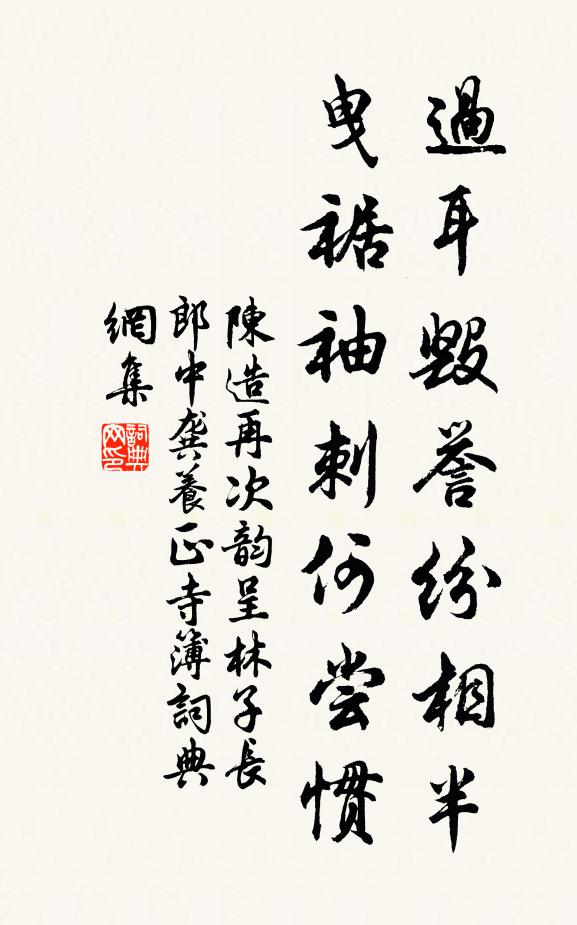 過耳毀譽紛相半
曳裾袖刺何尝慣
陳造再次韵呈林子長
郎中龔養正寺簿詞典
網集
詞典网印